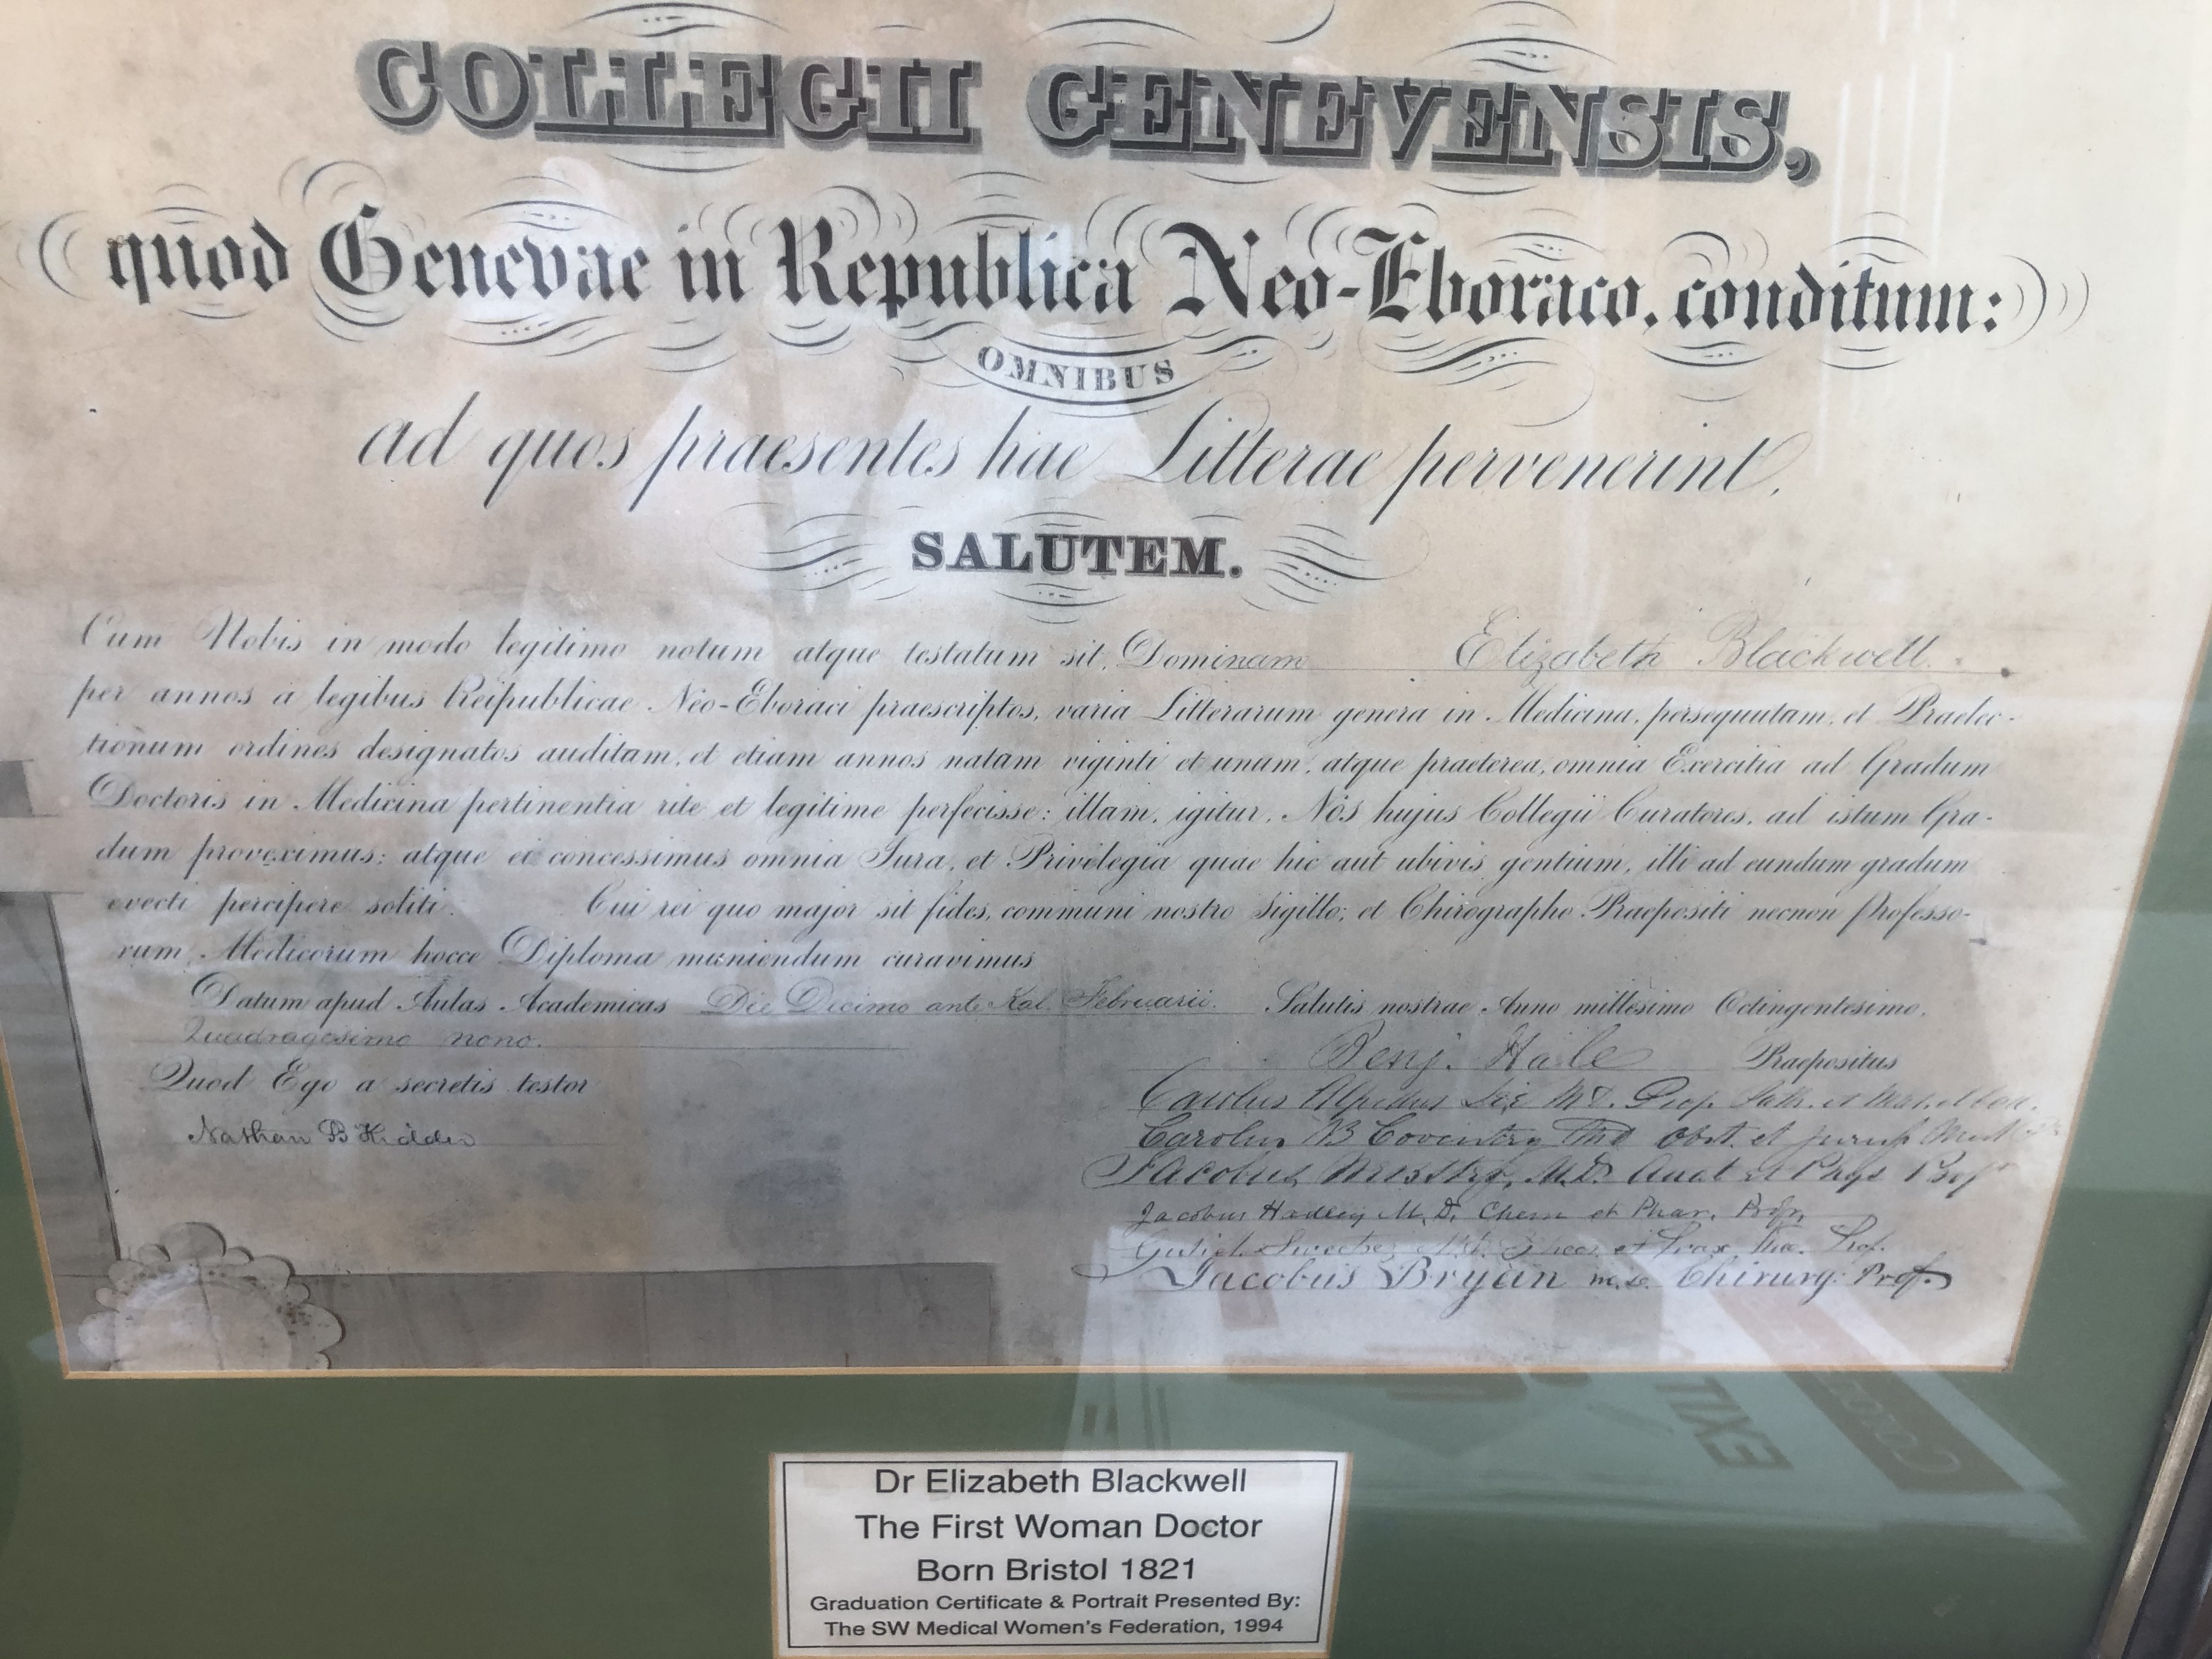 COLLEGII GENEVENSIS,
quod Genevae in Republica Neo-Eboraco, conditum:
OMNIBUS
ad quos praesentes hae Litterae pervenerint,
SALUTEM.
Cum Nobis in modo legitimo notum atque testatum sit, Dominam Elizabeth Blackwell
per annos a legibus Reipublicae Neo-Eboraci praescriptos, varia Litterarum genera in Medicina, persequutam, et Praelec-
tionum ordines designatos auditam, et etiam annos natam viginti et unum, atque praeterea, omnia Exercitia ad Gradum
Doctoris in Medicina pertinentia rite et legitime perfecisse: illam, igitur, Nos hujus Collegii Curatores, ad istum Gra-
dum proveximus; atque ei concessimus omnia Jura, et Privilegia quae hic aut ubivis gentium, illi ad eundum gradum
evecti percipere soliti. Cui rei quo major sit fides, communi nostro Sigillo; et Chirographo Praepositi necnon Professo-
rum, Medicorum hocce Diploma muniendum curavimus
Datum apud Aulas Academicas Die Decimo ante Kal. Februarii. Salutis nostrae Anno millesimo Octingentesimo,
Quadragesimo nono.
Benj. Hale Praepositus
Quod Ego a secretis testor
Carolus M.D. Prof. et
Nathan B Kidder
Carolus B Coventry MD Obst. et
Jacobus M.D. Anat et Phys Prof
Jacobus Hadley M.D. Chem et Phar. Prof.
et Prax. Prof.
Jacobus Bryan M.D. Chirurg: Prof.
EXIT
Dr Elizabeth Blackwell
The First Woman Doctor
Born Bristol 1821
Graduation Certificate & Portrait Presented By:
The SW Medical Women's Federation, 1994